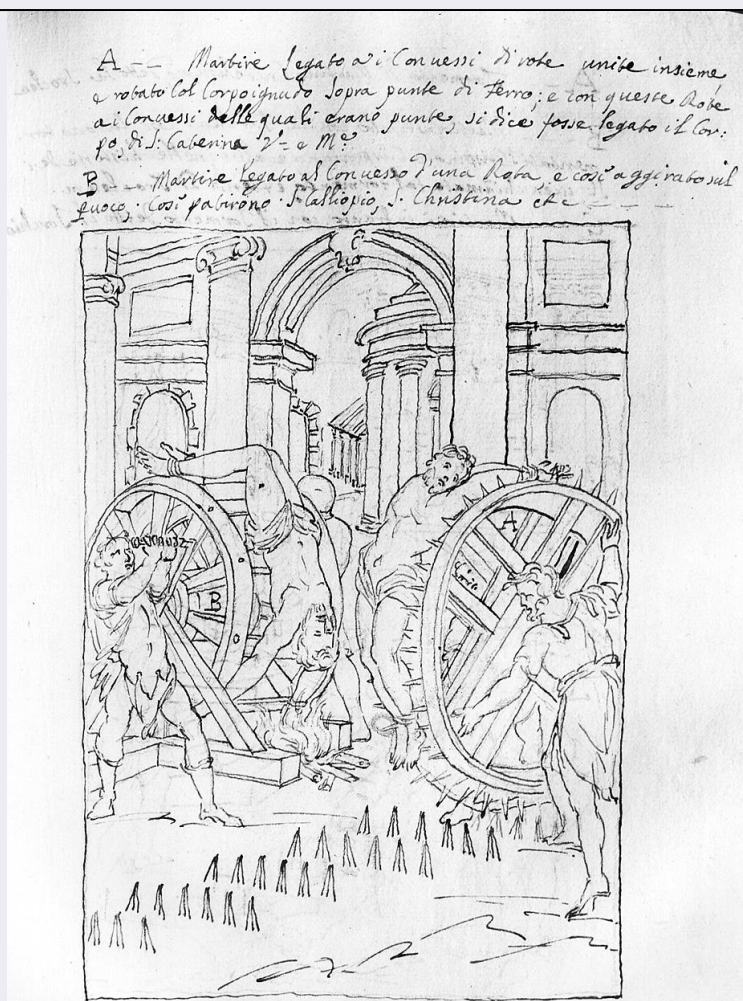 A -- Martire Legato a i Conuessi di rote unite insieme
e rotato Col Corpo ignudo Sopra punte di Ferro; e con queste Rote
a i Conuessi delle quali erano punte, si dice fosse legato il Cor:
po, di S. Caterina V.e e M.e
B Martire Legato al Conuesso d'una Rota, e così aggirato sul
fuoco. Così patirono S. Calliopio, S. Christina etc
B
A